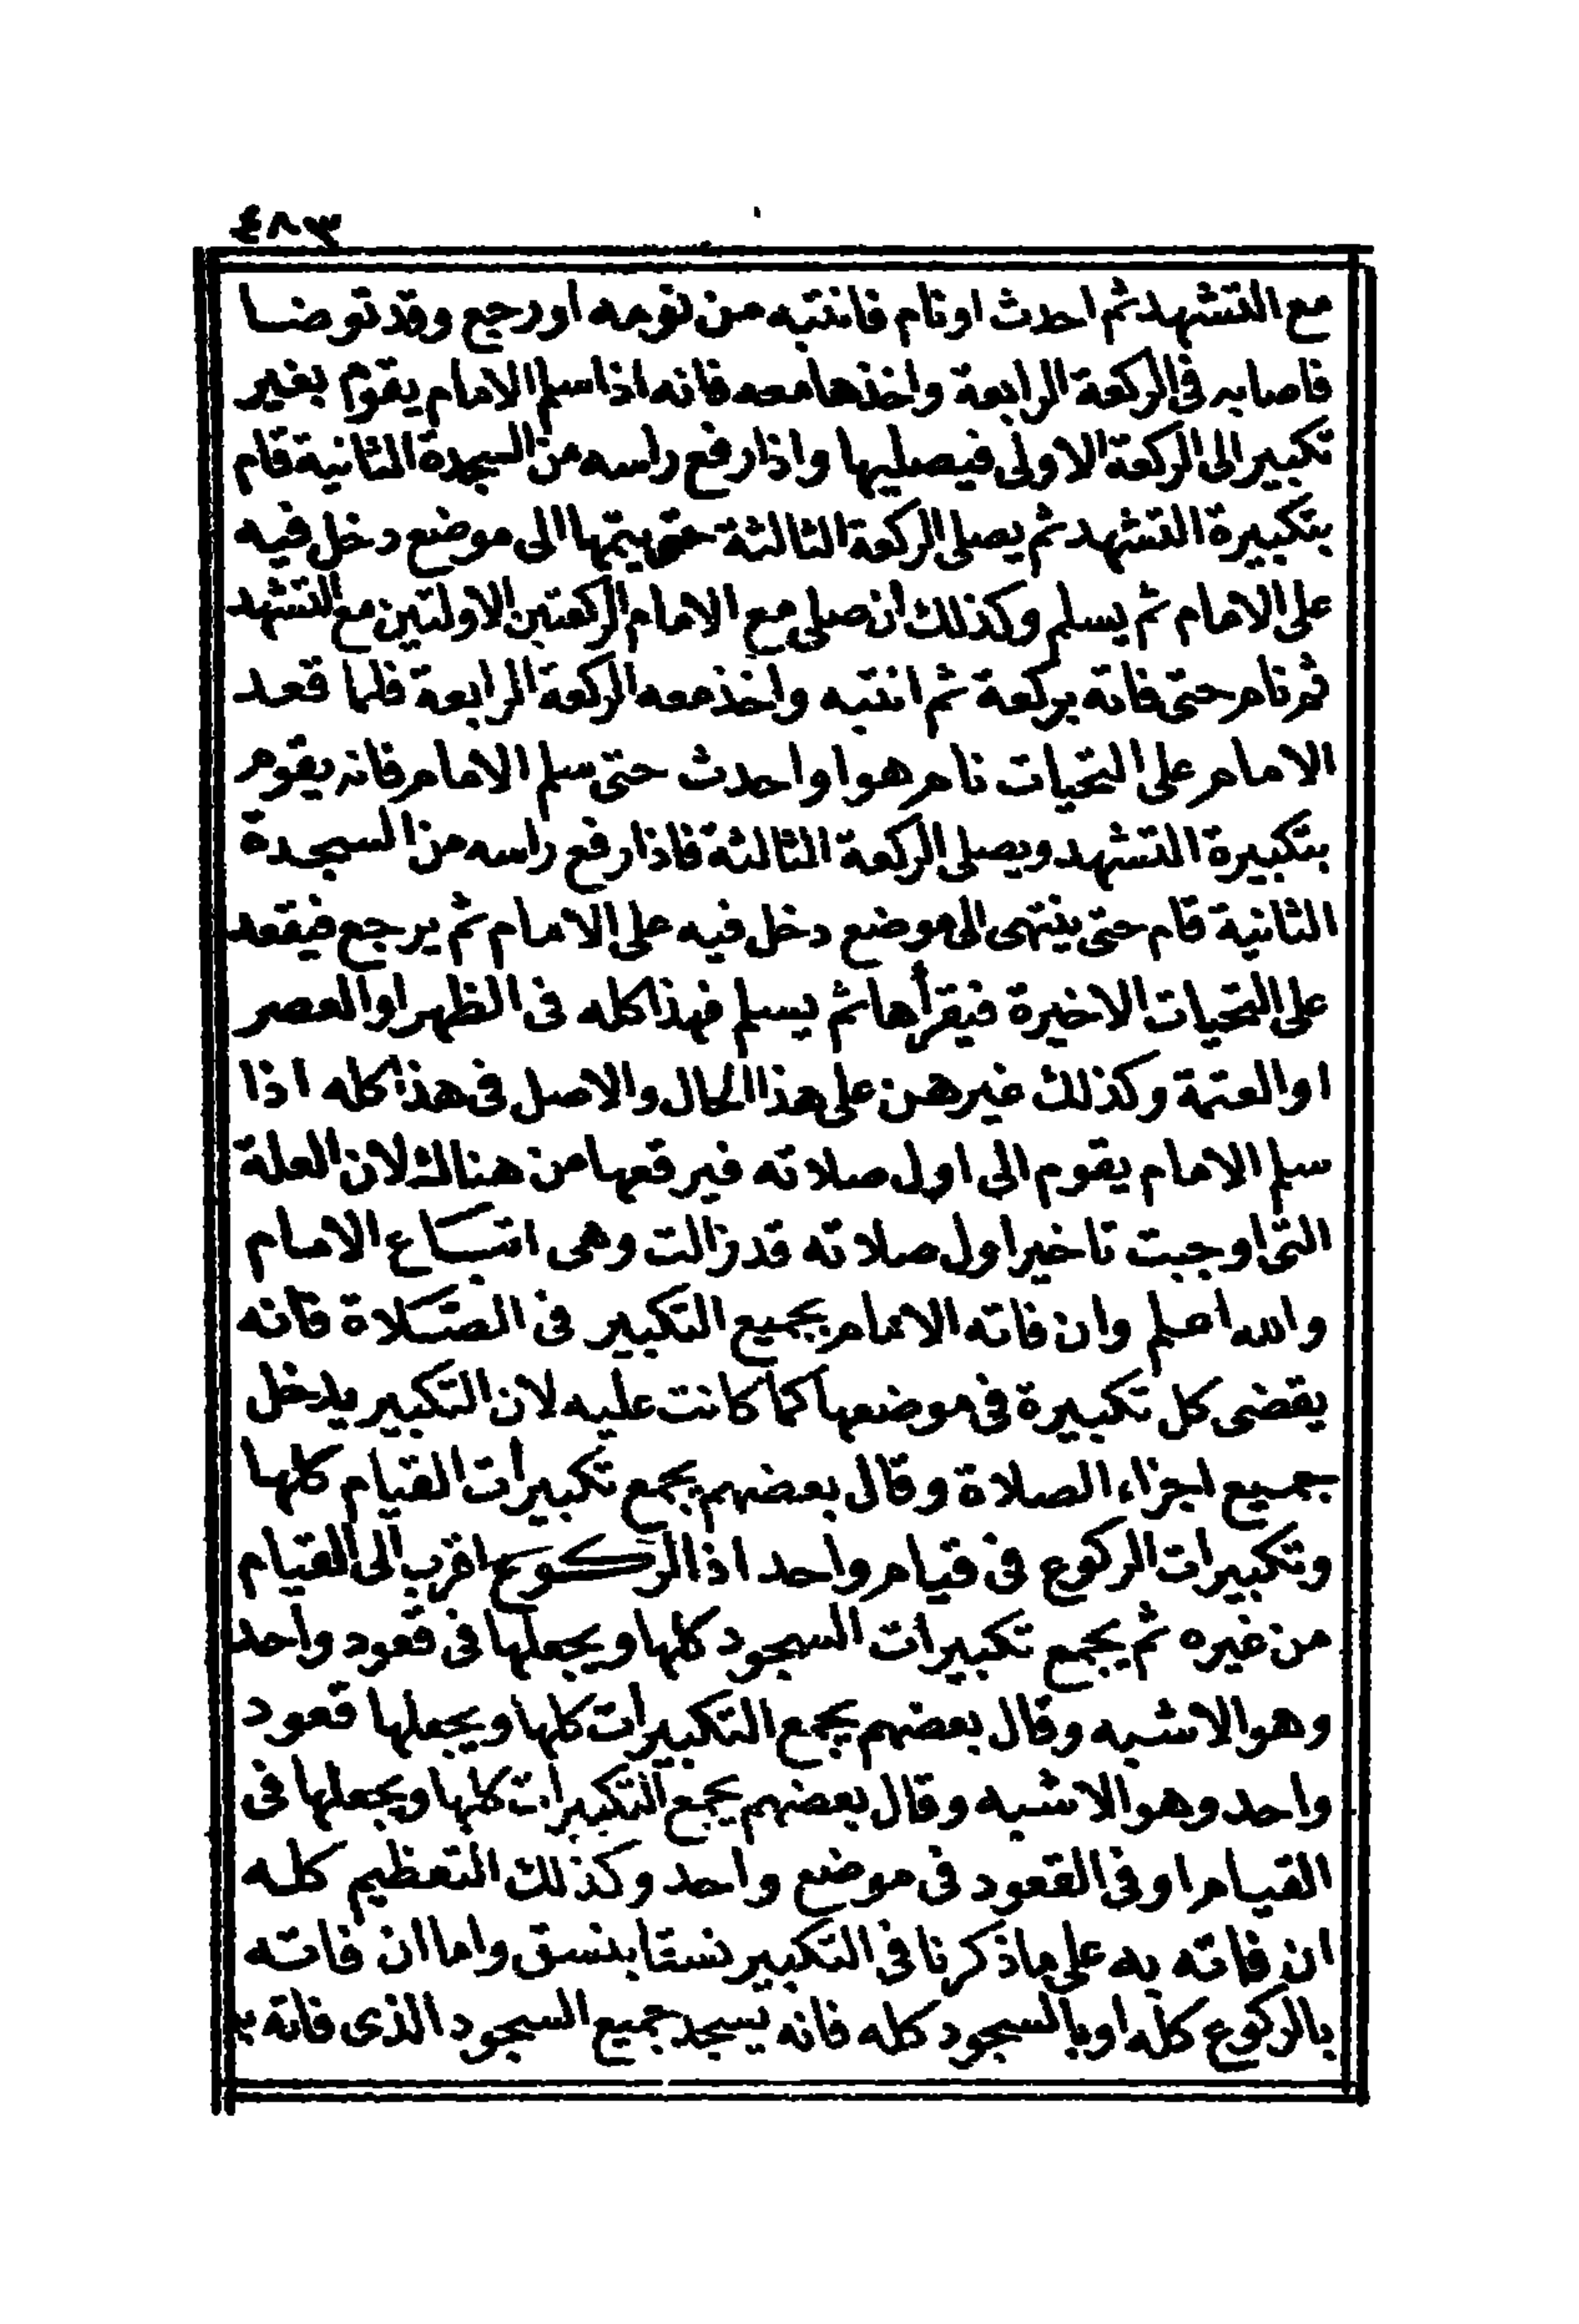 ٤٨٣
مع التشهد ثم احدث او نام فانتبه من نومه او رجع وقد توضا
فاصابه في الركعة الرابعة واخذها معه فانه اذا سلم الامام يقوم بغير
تكبير الى الركعة الاولى فيصليها واذا رفع راسه من السجدة الثانية قام
بتكبيرة التشهد ثم يصلى الركعة الثالثة حتى يتمها الى موضع دخل فيه
على الامام ثم يسلم وكذلك ان صلى مع الامام الركعتين الاولتين مع التشهد
ثم نام حتى فاته بركعة ثم انتبه واخذ معه الركعة الرابعة فلما قعد
الامام على التحيات نام هو او احدث حتى سلم الامام فانه يقوم
بتكبيرة التشهد ويصلى الركعة الثالثة فاذا رفع راسه من السجدة
الثانية قام حتى ينتهى الى موضع دخل فيه على الامام ثم يرجع فيقعد
على التحيات الاخيرة فيقرأها ثم يسلم فهذا كله فى الظهر او العصر
او العتمة وكذلك غيرهن على هذا الحال والاصل فى هذا كله اذا
سلم الامام يقوم الى اول صلاته فيرقعها من هناك لان العلة
التى اوجبت تاخير اول صلاته قد زالت وهى اتباع الامام
والله اعلم وان فاته الامام بجميع التكبير فى الصلاة فانه
يقضى كل تكبيرة فى موضعها كما كانت عليه لان التكبير يدخل
جميع اجزاء الصلاة وقال بعضهم يجمع تكبيرات القيام كلها
وتكبيرات الركوع فى قيام واحد اذ الركوع اقرب الى القيام
من غيره ثم يجمع تكبيرات السجود كلها ويجعلها فى قعود واحد
وهو الاشبه وقال بعضهم يجمع التكبيرات كلها ويجعلها قعود
واحد وهو الاشبه وقال بعضهم يجمع التكبيرات كلها ويجعلها فى
القيام او فى القعود فى موضع واحد وكذلك التعظيم كله
ان فاته به على ما ذكرنا فى التكبير نسقا بنسق واما ان فاته
بالركوع كله او بالسجود كله فانه يسجد جميع السجود الذى فاته به